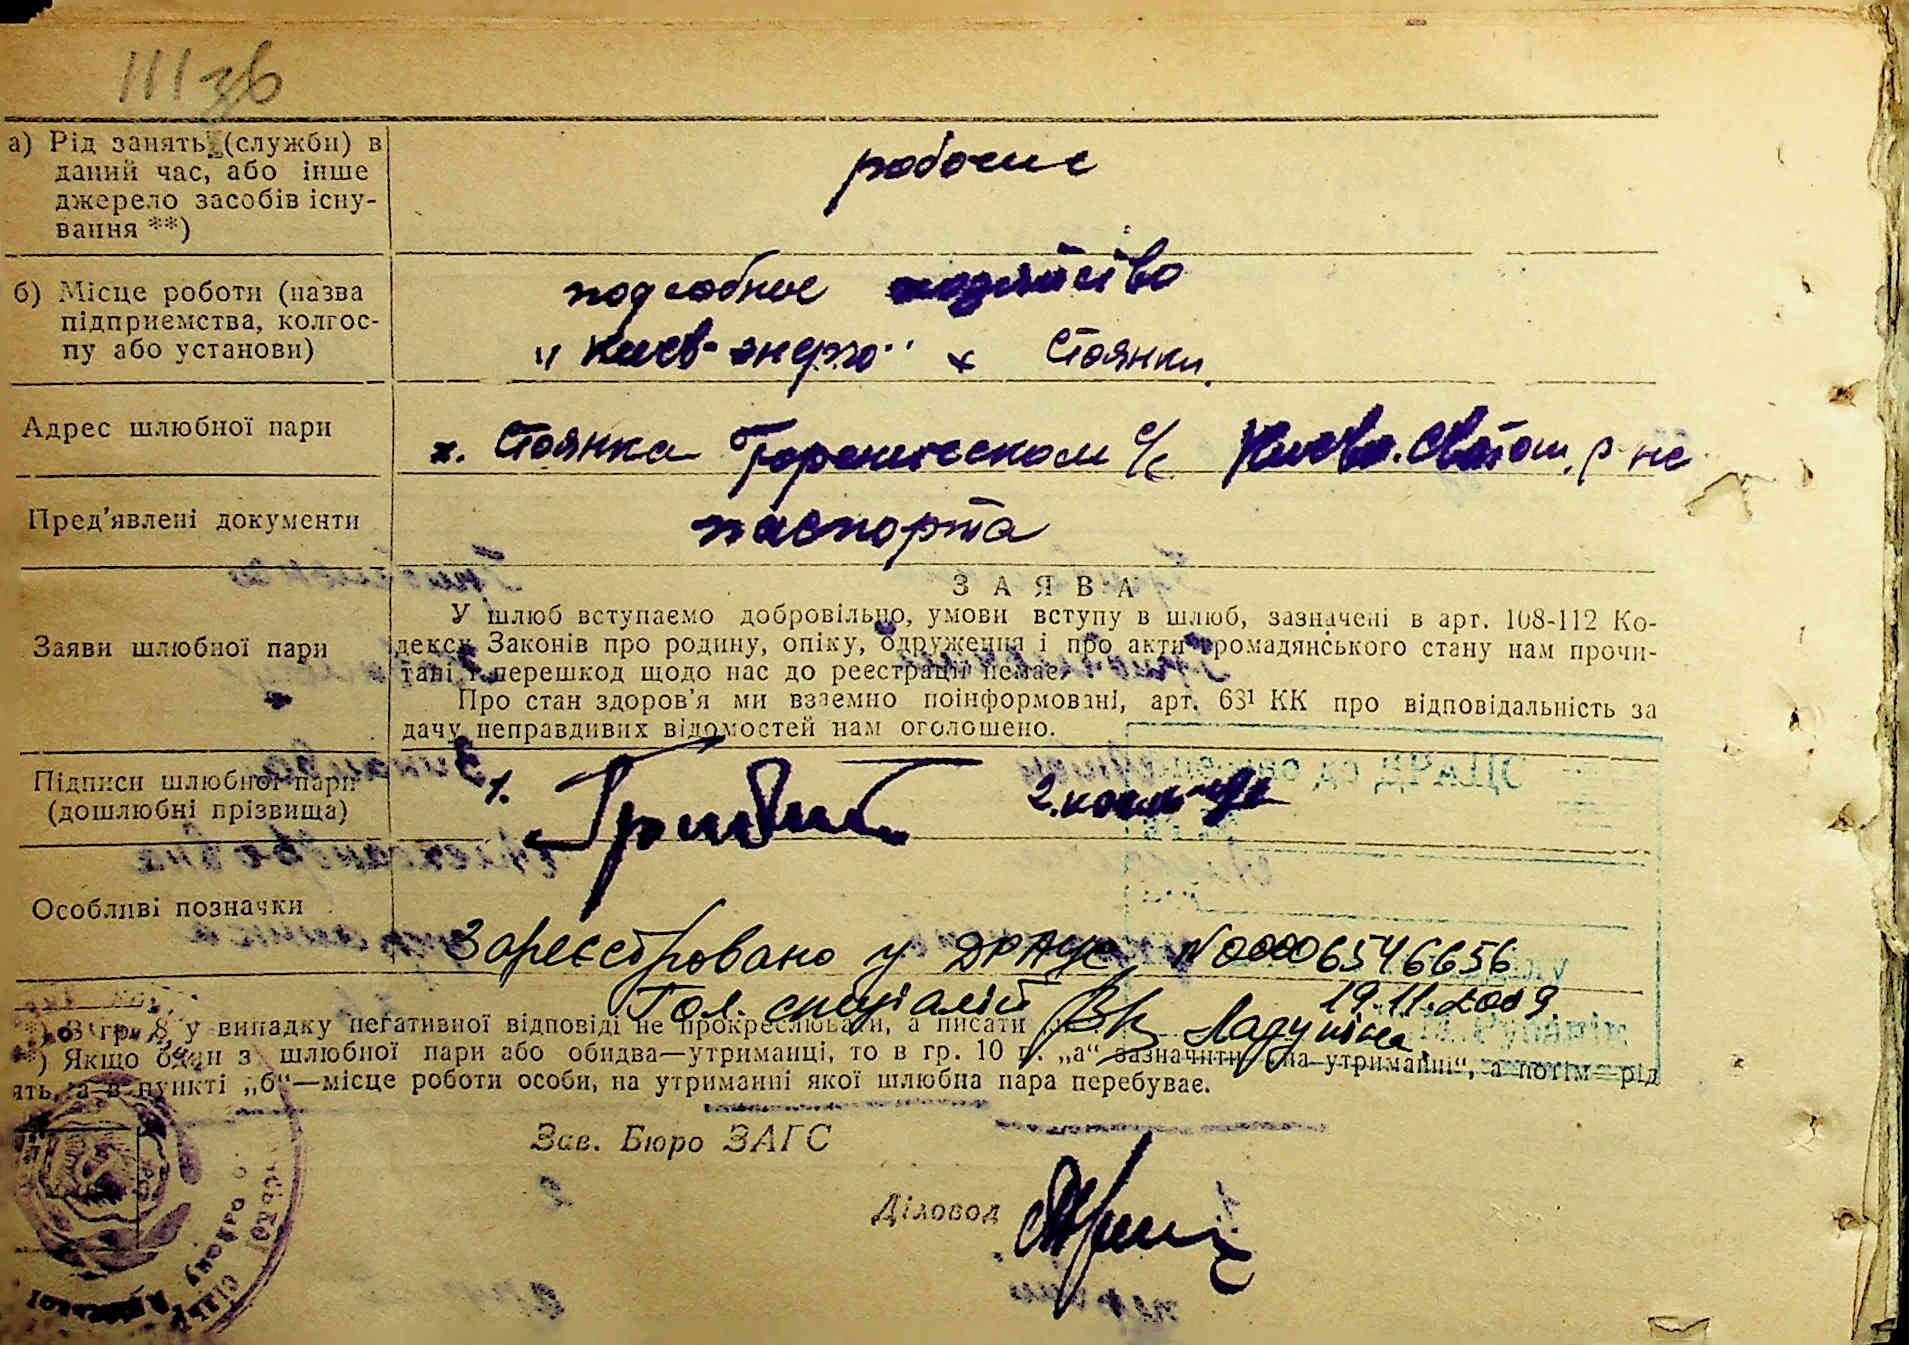 111 зв
а) Рід занять (служби) в
даний час, або інше
джерело засобів існу-
вання **)
рабочие
б) Місце роботи (назва
підприємства, колгос-
пу або установи)
подсобное хозяйство
"Киев-энерго" х Стоянки
Адрес шлюбної пари
х. Стоянка Гореническом с/с Киево. Святош. р-не
Пред'явлені документи
паспорта
Заяви шлюбної пари
ЗАЯВА
У шлюб вступаємо добровільно, умови вступу в шлюб, зазначені в арт. 108-112 Ко-
дексу Законів про родину, опіку, одруження і про акти громадянського стану нам прочи-
тані і перешкод щодо нас до реєстрації немає.
Про стан здоров'я ми взаємно поінформовані, арт. 63¹ КК про відповідальність за
дачу неправдивих відомостей нам оголошено.
Підписи шлюбної пари
(дошлюбні прізвища)
1.
2.
Особливі позначки
Зареєстровано у ДРАЦС №00006546656
Гол. спеціаліст
19.11.2009
*) В гр. 8, у випадку негативної відповіді не прокреслювати, а писати
**) Якщо один з шлюбної пари або обидва—утриманці, то в гр. 10 п. „а" зазначити „на утриманні", а потім рід
ять, а в пункті „б"—місце роботи особи, на утриманні якої шлюбна пара перебуває.
Зав. Бюро ЗАГС
Діловод